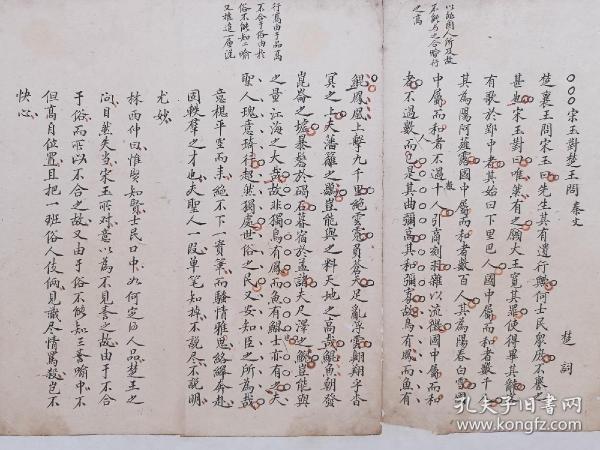 以能國人所及故
不能與之合行
之高
○○○宋玉對楚王問 秦文
楚詞
楚襄王問宋玉曰先生其有遺行與何士民衆庶不譽之
甚也宋玉對曰唯然有之願大王寬其罪使得畢其辭客
有歌於郢中者其始曰下里巴人國中屬而和者數千人
其為陽阿薤露國中屬而和者數百人其為陽春白雪國
中屬而和者不過數十人引商刻羽雜以流徵國中屬而和
者不過數人而已是其曲彌高其和彌寡故鳥有鳳而魚有
行為由于品高
不合于俗由於
俗不能知二喻
又推進一層説
鯤鳳凰上擊九千里絕雲霓負蒼天足亂浮雲翱翔乎杳
冥之上夫藩籬之鷃豈能與之料天地之高哉鯤魚朝發
崑崙之墟暴鬐於碣石暮宿於孟諸夫尺澤之鯢豈能與
之量江海之大哉故非獨鳥有鳳而魚有鯤士亦有之夫
聖人瑰意琦行超然獨處世俗之民又安知臣之所為哉
意想平空而来絶不下一實筆而騷情雅思絡繹奔赴
固軼羣之才也夫聖人一段單筆短掉不説尽不説明
尤妙
林西仲曰惟賢知賢士民口中如何定得人品楚王之
問自然失当宋玉所对意以為不見誉之故由于不合
于俗而所以不合之故又由于俗不能知三喻中不
但高自位置且把一班俗人伎倆見識尽情罵殺豈不
快心
孔夫子旧书网